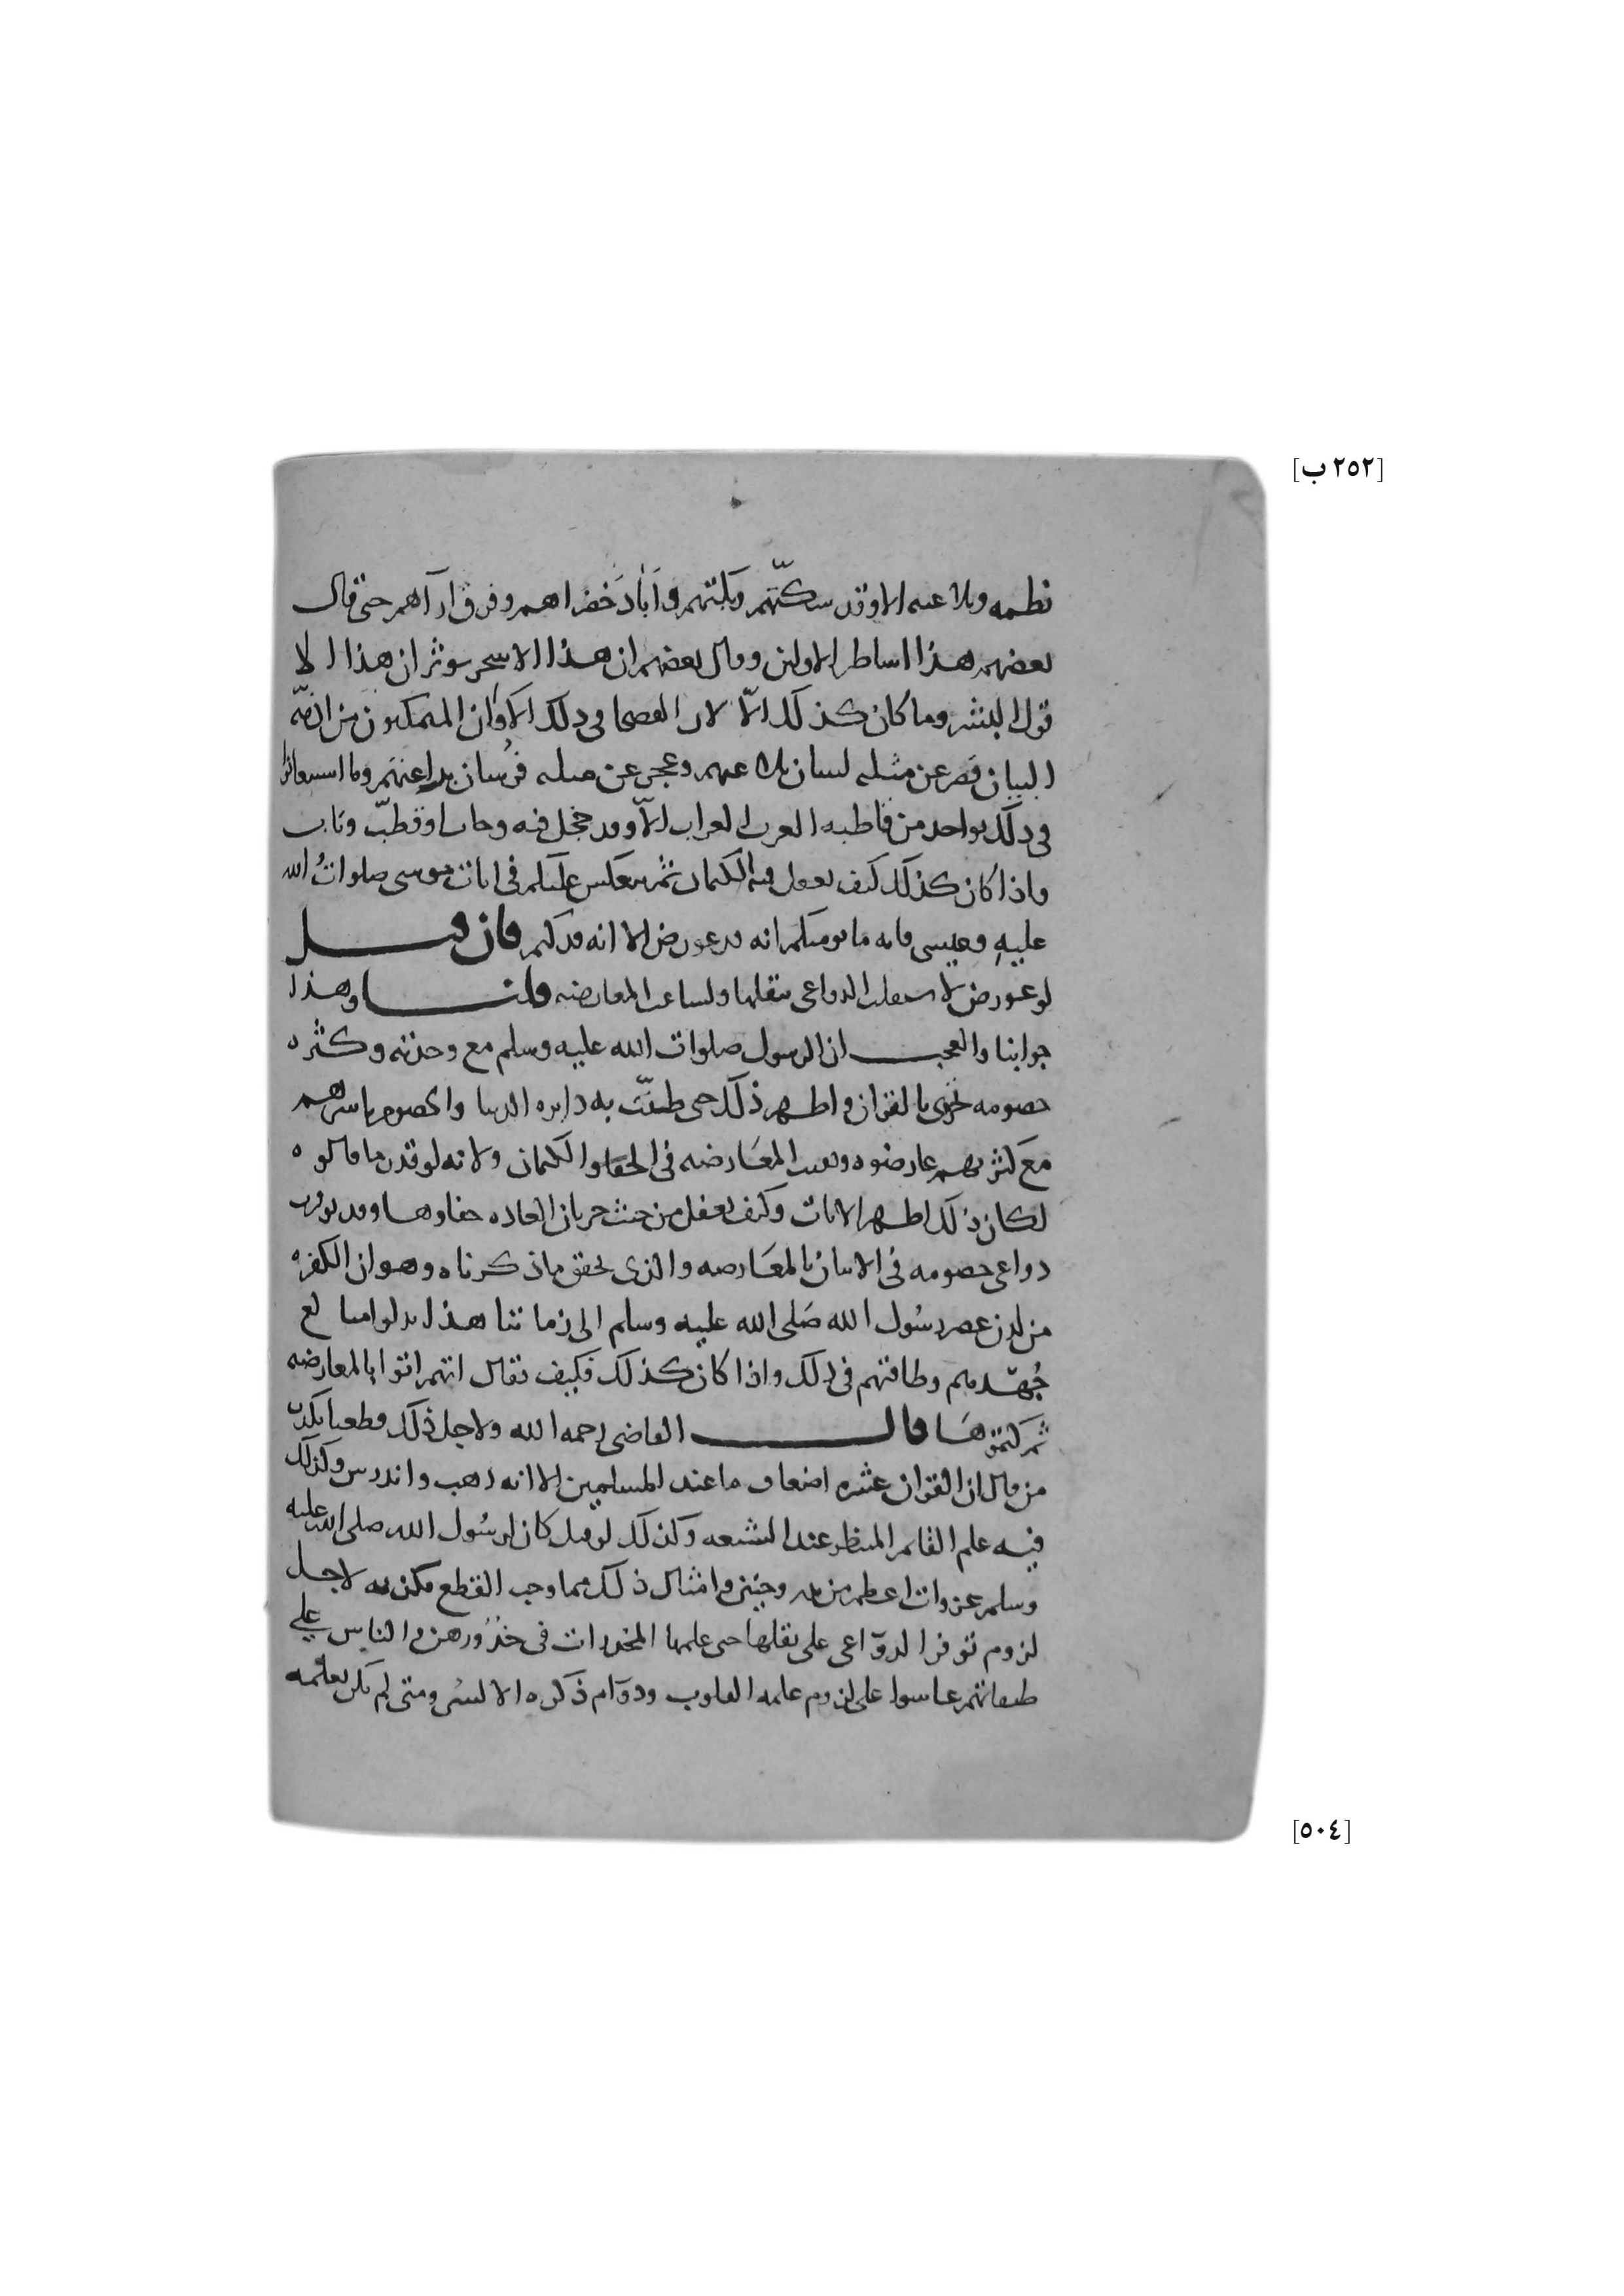 [٢٥٢ ب]
نظمه وبلاغته الا وقد سكتهم وبكتهم واباد خضراهم وفرق اراهم حتى قال
بعضهم هذا اساطير الاولين وقال بعضهم ان هذا الا سحر يوثر ان هذا الا
قول البشر وما كان كذلك الا لان الفصحا في ذلك الاوان المتمكنون من ازمه
البيان قصر عن مثله لسان بلاغتهم وعجز عن مثله فرسان براعتهم وما استعانوا
في ذلك بواحد من قاطبه العرب العراب الا وقد خجل فيه وخاب وقطب وناب
واذا كان كذلك كيف يعقل فيه الكتمان ثم ينعكس عليكم في ايات موسى صلوات الله
عليه وعيسى فانه ما يومنكم انه قد عورض الا انه قد كتم فان قيل
لو عورض لاستقلت الدواعي بنقلها ولساعت المعارضه قلنا وهذا
جوابنا والعجب ان الرسول صلوات الله عليه وسلم مع وحدته وكثره
خصومه تحدى بالقران واظهر ذلك حتى طنت به دايره الدنيا والخصوم باسرهم
مع كثرتهم عارضوه وبقيت المعارضه في الخفا والكتمان ولانه لو قدر ما قالوه
لكان ذلك اظهر الايات وكيف يعقل من حيث جريان العاده خفاوها وقد توفرت
دواعي خصومه في الاتيان بالمعارضه والذي يحقق ما ذكرناه وهو ان الكفره
من لدن عصر رسول الله صلى الله عليه وسلم الى زماننا هذا بذلوا مبالغ
جهدهم وطاقتهم في ذلك واذا كان كذلك فكيف يقال انهم اتوا بالمعارضه
ثم كتموها قال القاضي رحمه الله ولاجل ذلك قطعنا بكذب
من قال ان القران عشره اضعاف ما عند المسلمين الا انه ذهب واندرس وكذلك
فيه علم القايم المنتظر عند الشيعه وكذلك لو قيل كان لرسول الله صلى الله عليه
وسلم غزوات اعظم من بدر وحنين وامثال ذلك مما وجب القطع بكذبه لاجل
لزوم توفر الدواعي على نقلها حتى علمها المخدرات في خدورهن والناس على
طبقاتهم عاشوا على لزوم علمه القلوب ودوام ذكره الالسن ومتى لم يكن يعلمه
[٥٠٤]